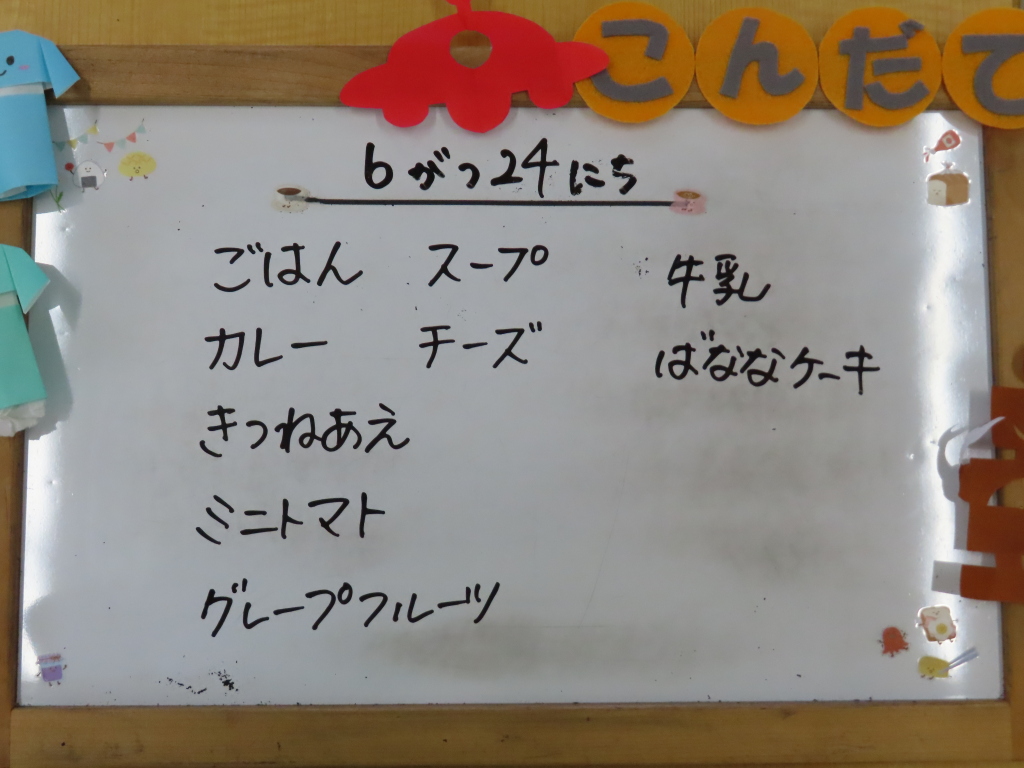 こんだて
6がつ24にち
ごはん
カレー
きつねあえ
ミニトマト
グレープフルーツ
スープ
チーズ
牛乳
ばななケーキ